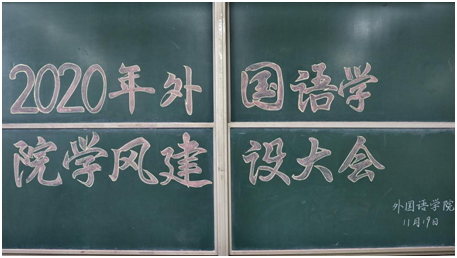 2020年外国语学
院学风建设大会
外国语学院
11月19日